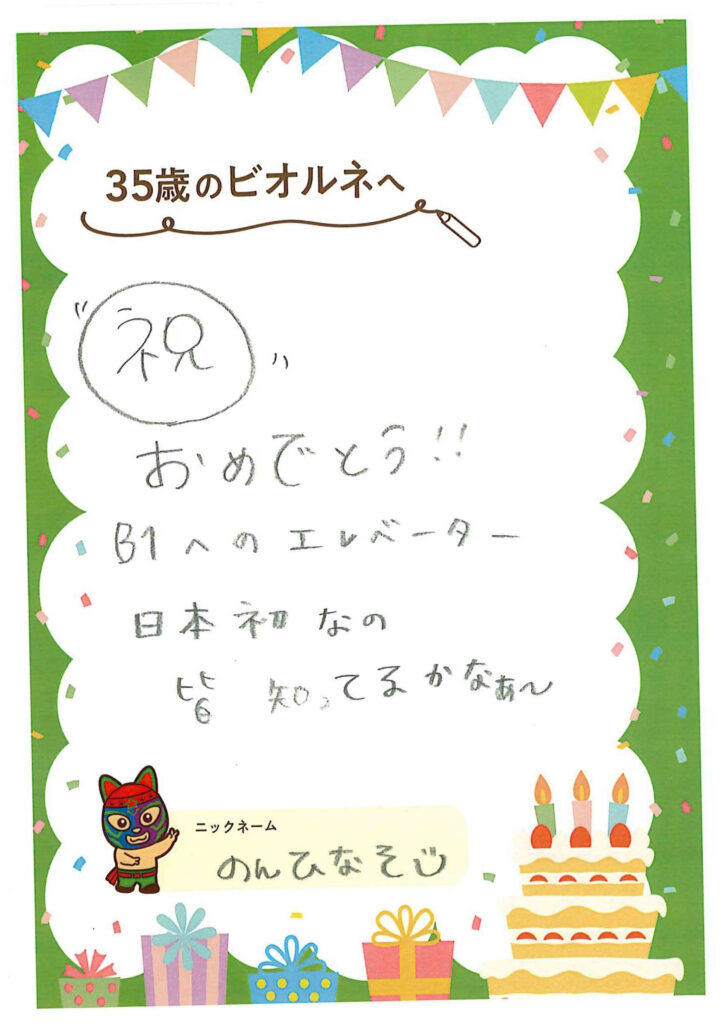 35歳のビオルネへ
〃祝〃
おめでとう!!
B1へのエレベーター
日本初なの
皆 知ってるかなぁ〜
ニックネーム
のんひなそ